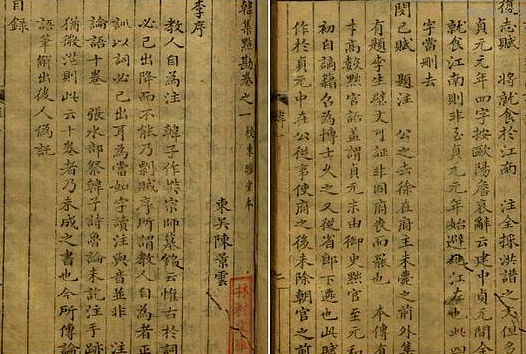 韓集點勘卷之一 校東雅堂本
東吳陳景雲
李序
教人自為注 韓子作樊宗師墓銘云惟古於詞
必己出降而不能乃剽賊序所謂教人自為者正
訓以詞必己出耳為當如字讀注與音並非 注
論語十卷 張水部祭韓子詩魯論未訖注手跡
猶微茫則此云十卷者乃未成之書也今所傳論
語筆解出後人偽託
目錄
復志賦 將就食於江南 注全採洪譜之文但多
貞元元年四字按歐陽詹哀辭云建中貞元間余
就食江南則非至貞元元年始避地江左也此四
字當刪去
閔己賦 題注 公之去徐在府主未薨之前外集
有題李生壁文可証非因府喪而罷也 本傳有
才高數黜官語蓋謂貞元末由御史黜官至元和
初自謫籍召為博士久之又從省郎下遷也此賦
作於貞元中在公從事使府之後未除朝官之前